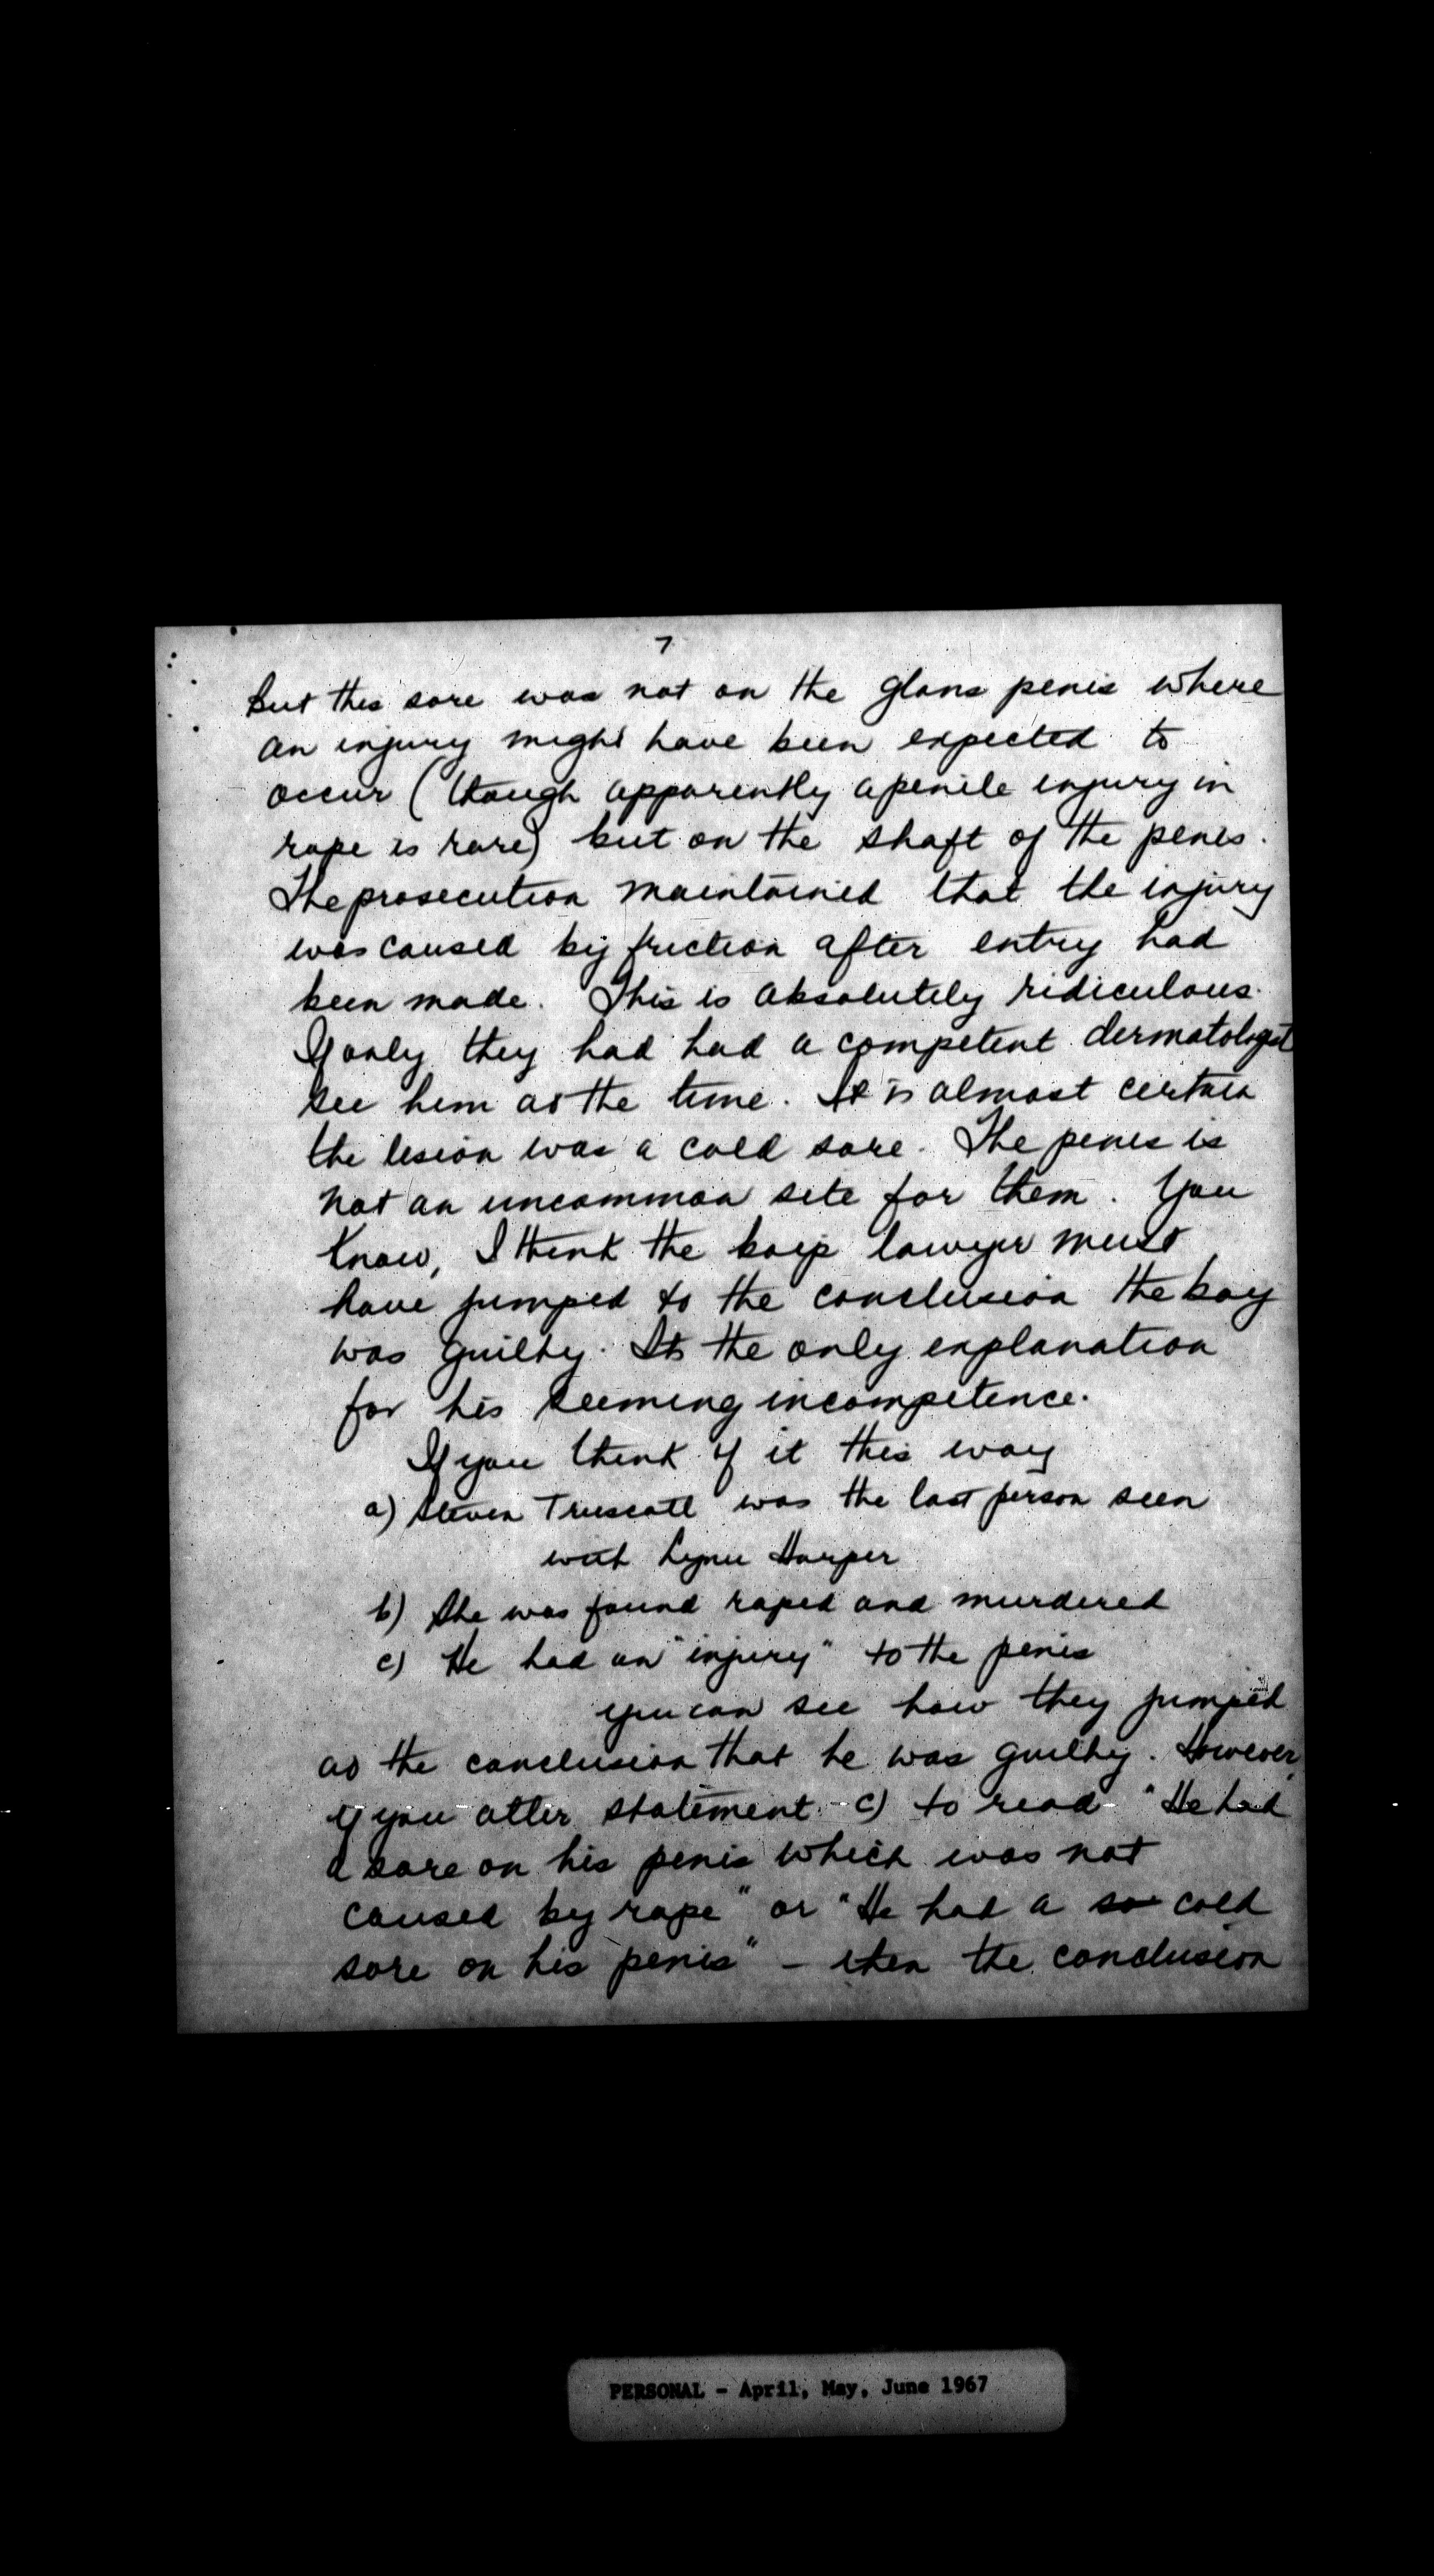 7
But this sore was not on the glans penis where
an injury might have been expected to
occur (though apparently a penile injury in
rape is rare) but on the shaft of the penis.
The prosecution maintained that the injury
was caused by friction after entry had
been made. This is absolutely ridiculous.
If only they had had a competent dermatologist
see him at the time. It is almost certain
the lesion was a cold sore. The penis is
not an uncommon site for them. You
know, I think the boys lawyer must
have jumped to the conclusion the boy
was guilty. Its the only explanation
for his seeming incompetence.
If you think of it this way
a) Steven Truscott was the last person seen
with Lynn Harper
b) She was found raped and murdered
c) He had an "injury" to the penis
you can see how they jumped
at the conclusion that he was guilty. However,
if you alter statement - c) to read "He had
a sore on his penis which was not
caused by rape" or "He had a so cold
sore on his penis" - then the conclusion
PERSONAL - April, May, June 1967